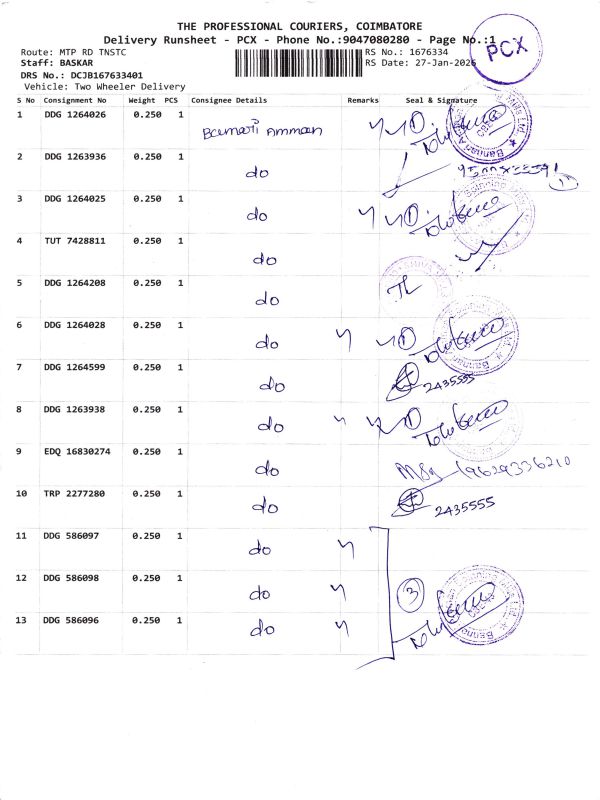 THE PROFESSIONAL COURIERS, COIMBATORE
Delivery Runsheet - PCX - Phone No.:9047080280 - Page No.:1
Route: MTP RD TNSTC RS No.: 1676334
Staff: BASKAR RS Date: 27-Jan-2026
DRS No.: DCJB167633401
Vehicle: Two Wheeler Delivery
PCX
S No Consignment No Weight PCS Consignee Details Remarks Seal & Signature
1 DDG 1264026 0.250 1 Bannari Amman
2 DDG 1263936 0.250 1 do
3 DDG 1264025 0.250 1 do
4 TUT 7428811 0.250 1 do
5 DDG 1264208 0.250 1 do
6 DDG 1264028 0.250 1 do
7 DDG 1264599 0.250 1 do 2435555
8 DDG 1263938 0.250 1 do
9 EDQ 16830274 0.250 1 do 9629336210
10 TRP 2277280 0.250 1 do 2435555
11 DDG 586097 0.250 1 do
12 DDG 586098 0.250 1 do 3
13 DDG 586096 0.250 1 do